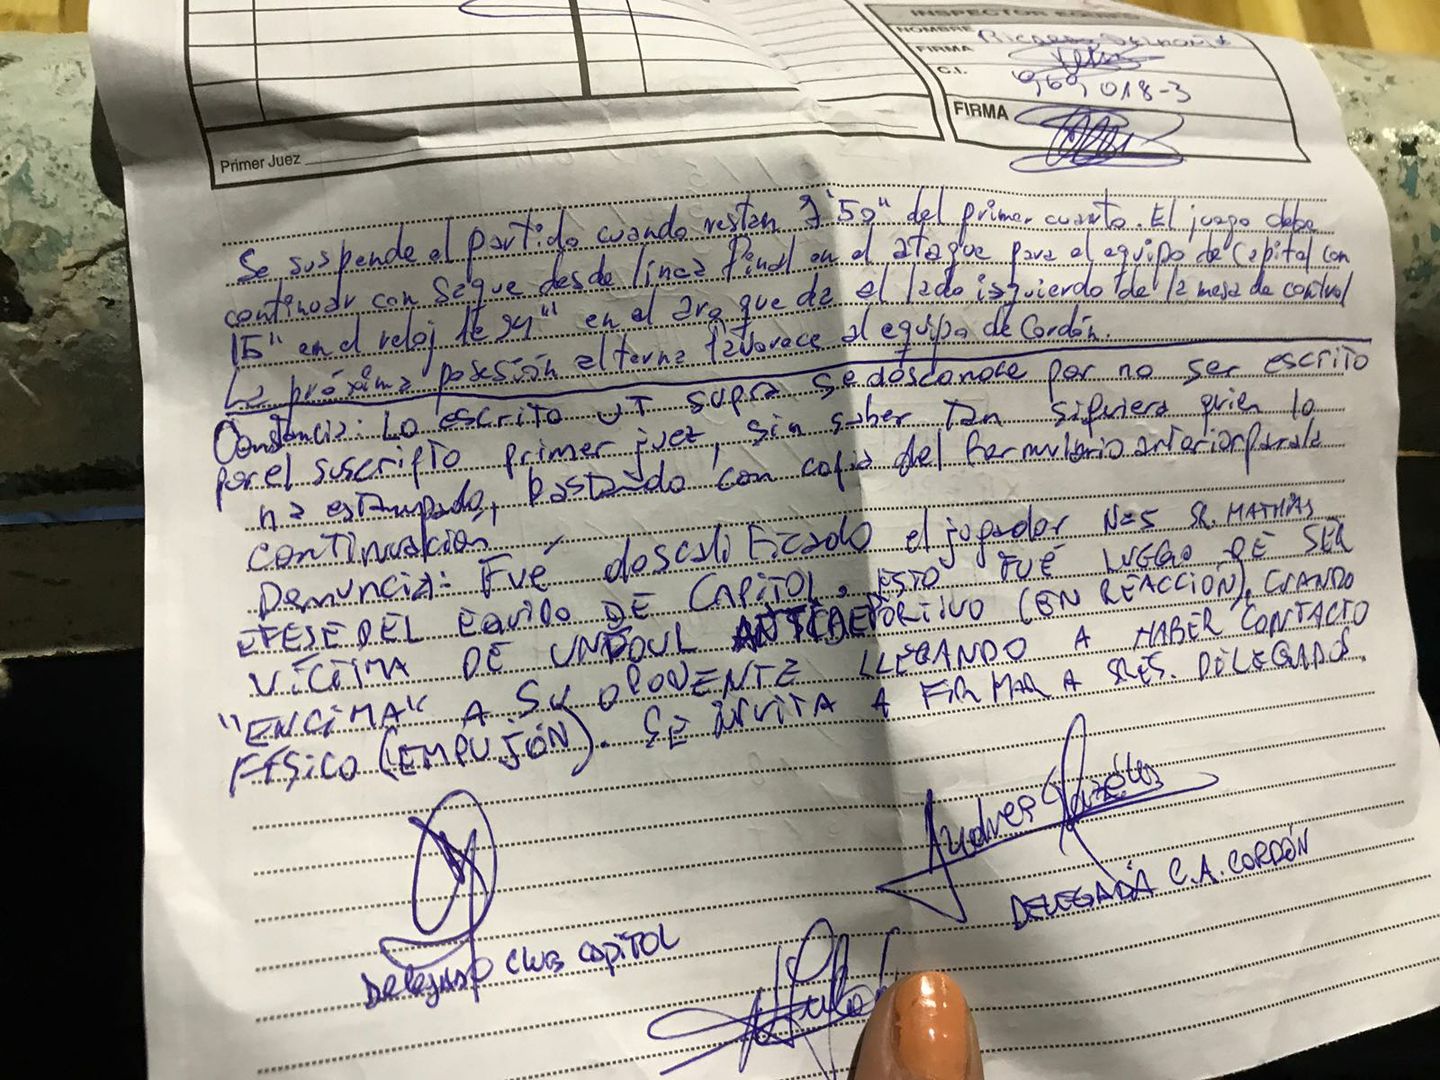 INSPECTOR EQUIPO
NOMBRE
FIRMA
C.I. 969018-3
FIRMA
Primer Juez
Se suspende el partido cuando restan 7'50" del primer cuarto. El juego debe
continuar con saque desde línea final en el ataque para el equipo de Capitol con
15" en el reloj de 24" en el aro que da el lado izquierdo de la mesa de control
La próxima posesión alterna favorece al equipo de Cordón.
Constancia: Lo escrito ut supra se desconoce por no ser escrito
por el suscripto primer juez, sin saber tan siquiera quien lo
ha estampado, pasando con copia del formulario anterior para la
continuación
Denuncia: Fué descalificado el jugador N=5 SR. MATHÍAS
EFESE DEL EQUIPO DE CAPITOL. ESTO FUÉ LUEGO DE SER
VÍCTIMA DE UN FOUL ANTIDEPORTIVO (EN REACCIÓN), CUANDO
"ENCIMA" A SU OPONENTE LLEGANDO A HABER CONTACTO
FÍSICO (EMPUJÓN). SE INVITA A FIRMAR A SRES. DELEGADOS.
DELEGADO CLUB CAPITOL
DELEGADA C.A. CORDÓN